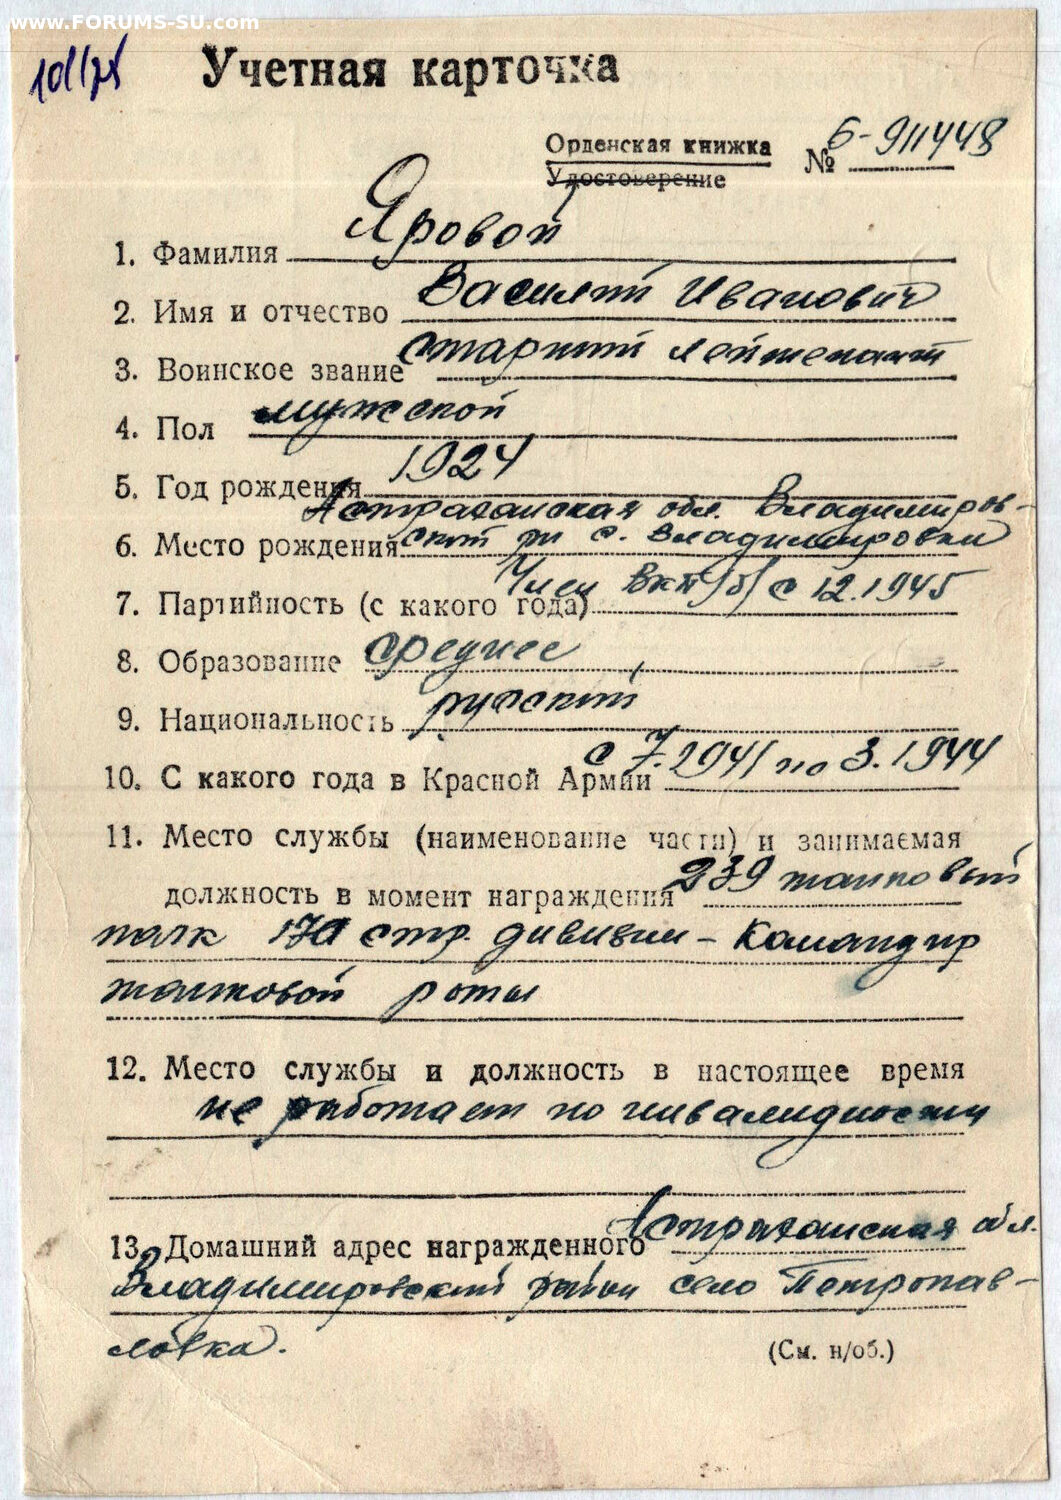 www.FORUMS-SU.com
Учетная карточка
Орденская книжка № Б-911448
Удостоверение
1. Фамилия Яровой
2. Имя и отчество Василий Иванович
3. Воинское звание старший лейтенант
4. Пол мужской
5. Год рождения 1924
Астраханская обл. Владимиров-
6. Место рождения ский рн с. Владимировки
7. Партийность (с какого года) Член ВКП(б) с 12.1945
8. Образование среднее
9. Национальность русский
10. С какого года в Красной Армии с 7.1941 по 3.1944
11. Место службы (наименование части) и занимаемая
должность в момент награждения 239 танковый
полк 170 стр. дивизии – командир
танковой роты
12. Место службы и должность в настоящее время
не работает по инвалидности
13. Домашний адрес награжденного Астраханская обл.
Владимировский район село Петропав-
ловка.
(См. н/об.)